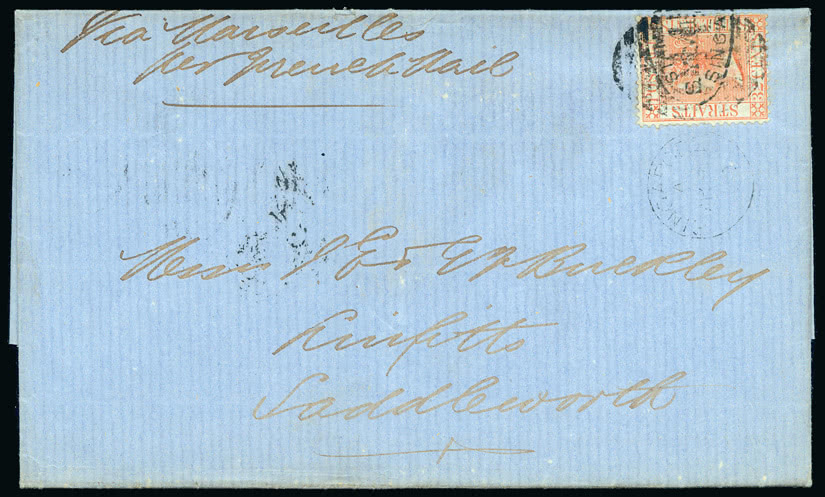 Via Marseilles
per French Mail
STRAITS
Messrs J E & E W Buckley
Linfitts
Saddleworth